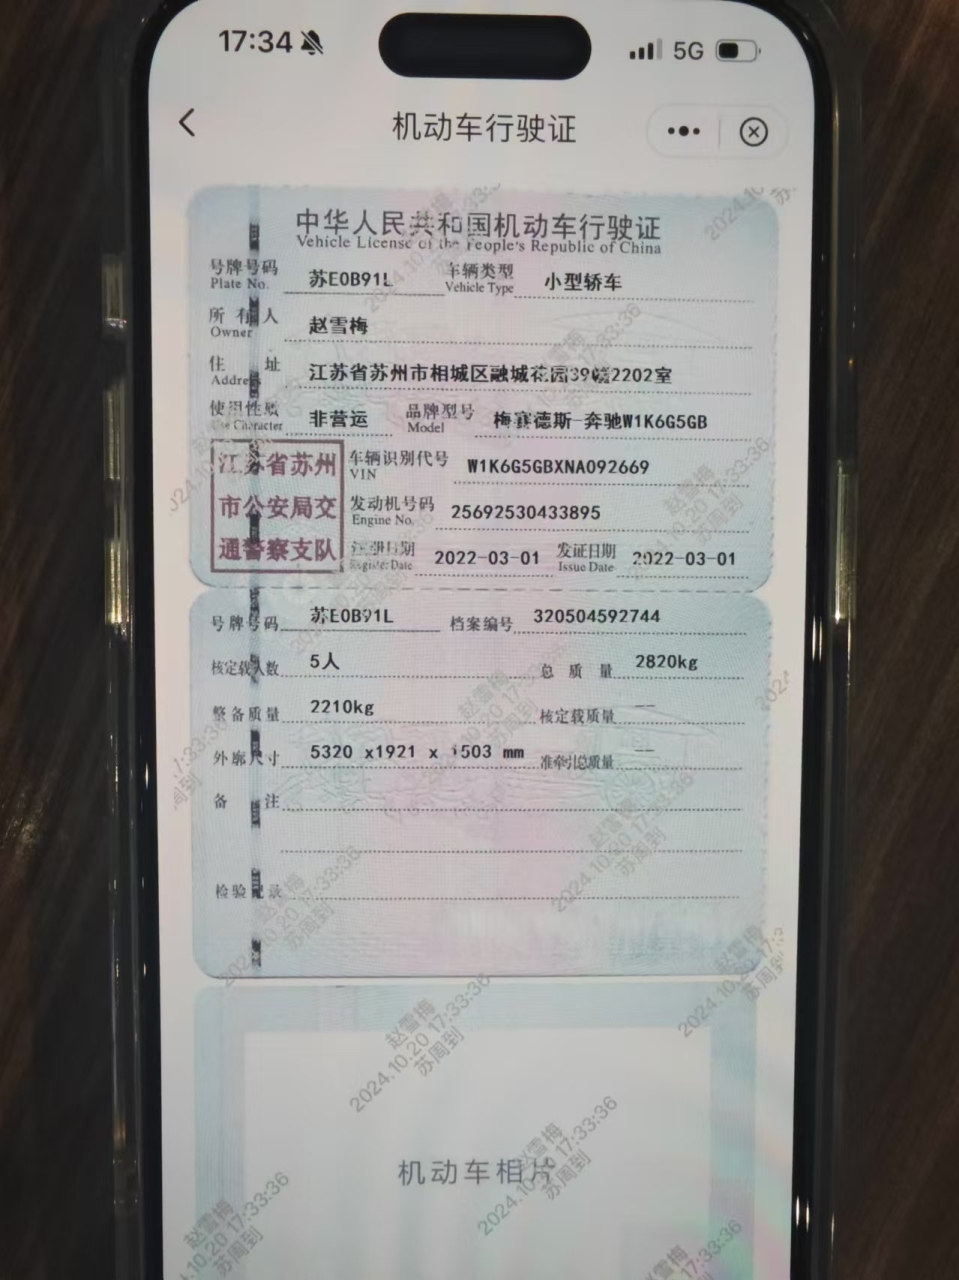 17:34 5G
机动车行驶证
中华人民共和国机动车行驶证
Vehicle License of the People's Republic of China
号牌号码 苏E0B91L 车辆类型 小型轿车
Plate No. Vehicle Type
所有人 赵雪梅
Owner
住址 江苏省苏州市相城区融城花园39幢2202室
Address
使用性质 非营运 品牌型号 梅赛德斯-奔驰W1K6G5GB
Use Character Model
江苏省苏州
市公安局交
通警察支队
车辆识别代号 W1K6G5GBXNA092669
VIN
发动机号码 25692530433895
Engine No.
注册日期 2022-03-01 发证日期 2022-03-01
Register Date Issue Date
号牌号码 苏E0B91L 档案编号 320504592744
核定载人数 5人 总质量 2820kg
整备质量 2210kg 核定载质量 --
外廓尺寸 5320 x1921 x 1503 mm 准牵引总质量 --
备注
检验记录
赵雪梅
2024.10.20 17:33:36
苏周到
机动车相片
赵雪梅
2024.10.20 17:33:36
苏周到